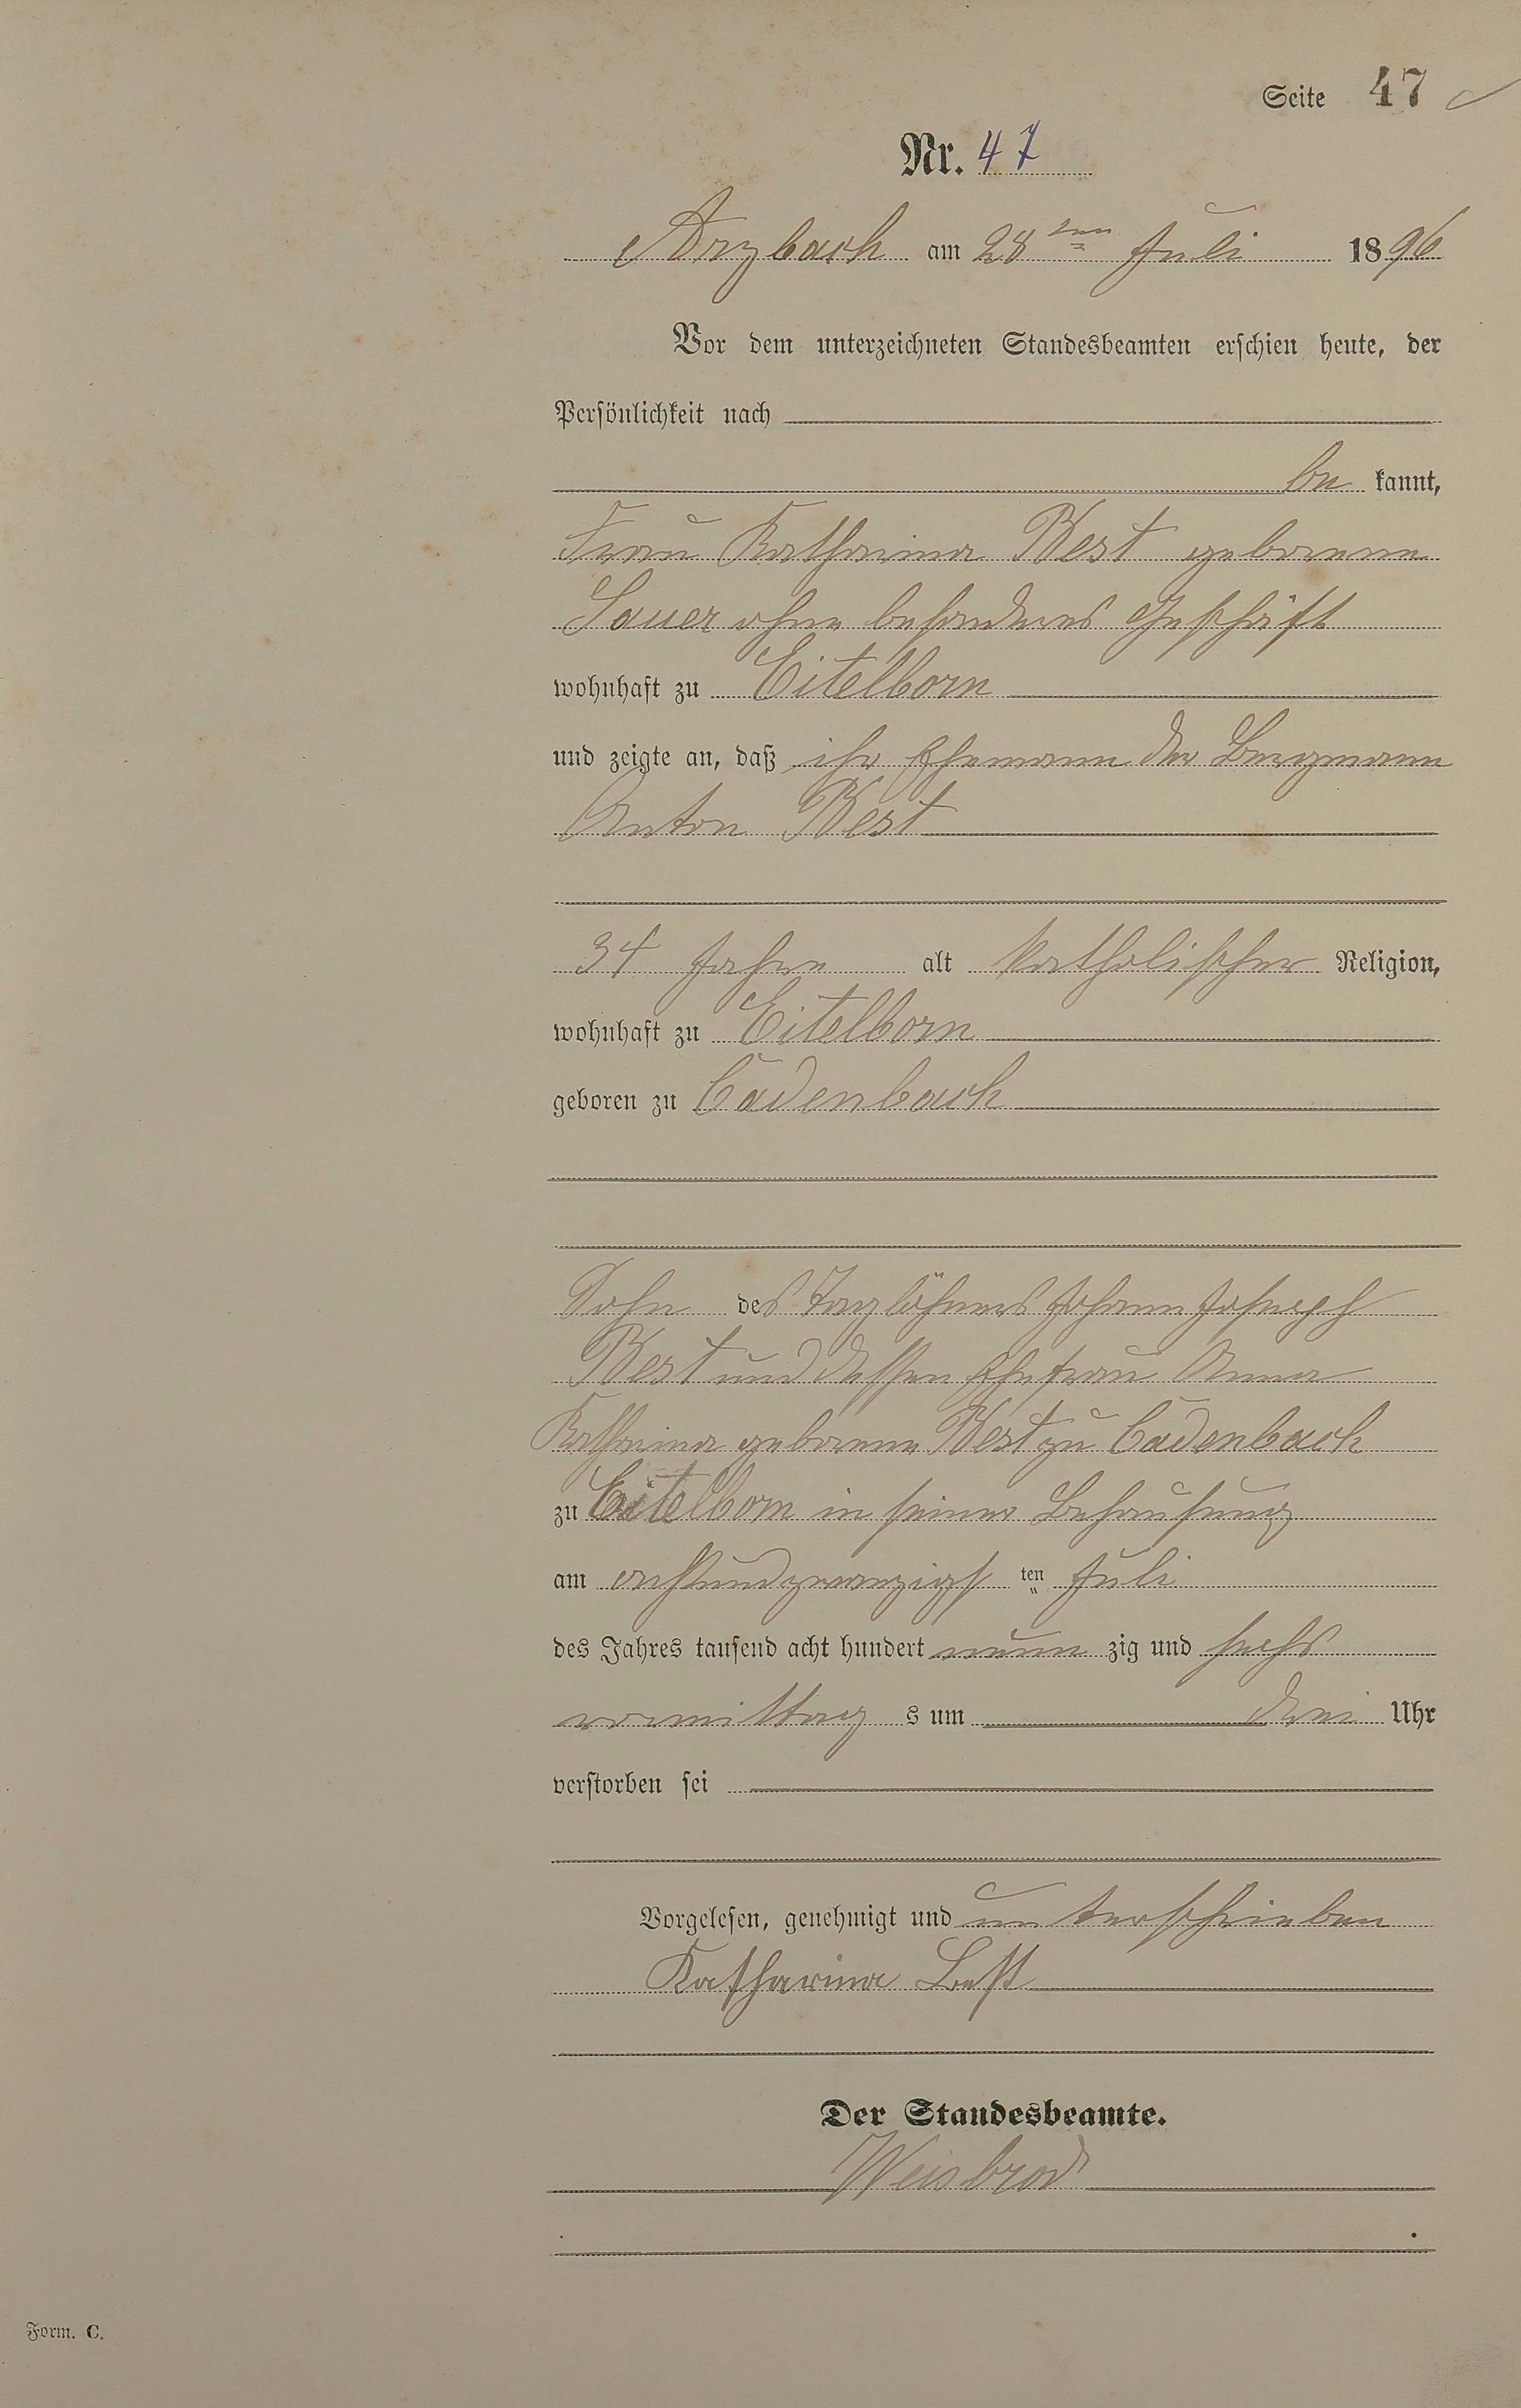 Seite 47
Nr. 47
Arzbach am 28ten Juli 1896
Vor dem unterzeichneten Standesbeamten erschien heute, der
Persönlichkeit nach
be kannt,
Frau Katharina Best geborene
Sauer ohne besonderes Geschäft
wohnhaft zu Eitelborn
und zeigte an, daß ihr Ehemann der Bergmann
Anton Best
34 Jahre alt katholischer Religion,
wohnhaft zu Eitelborn
geboren zu Cadenbach
Sohn des Taglöhners Johann Joseph
Best und dessen Ehefrau Anna
Katharina geborene Best zu Cadenbach
zu Eitelborn in seiner Behausung
am achtundzwanzigs ten Juli
des Jahres tausend acht hundert neun zig und sechs
vormittag s um drei Uhr
verstorben sei
Vorgelesen, genehmigt und unterschrieben
Katharina Best
Der Standesbeamte.
Weisbrod
Form. C.